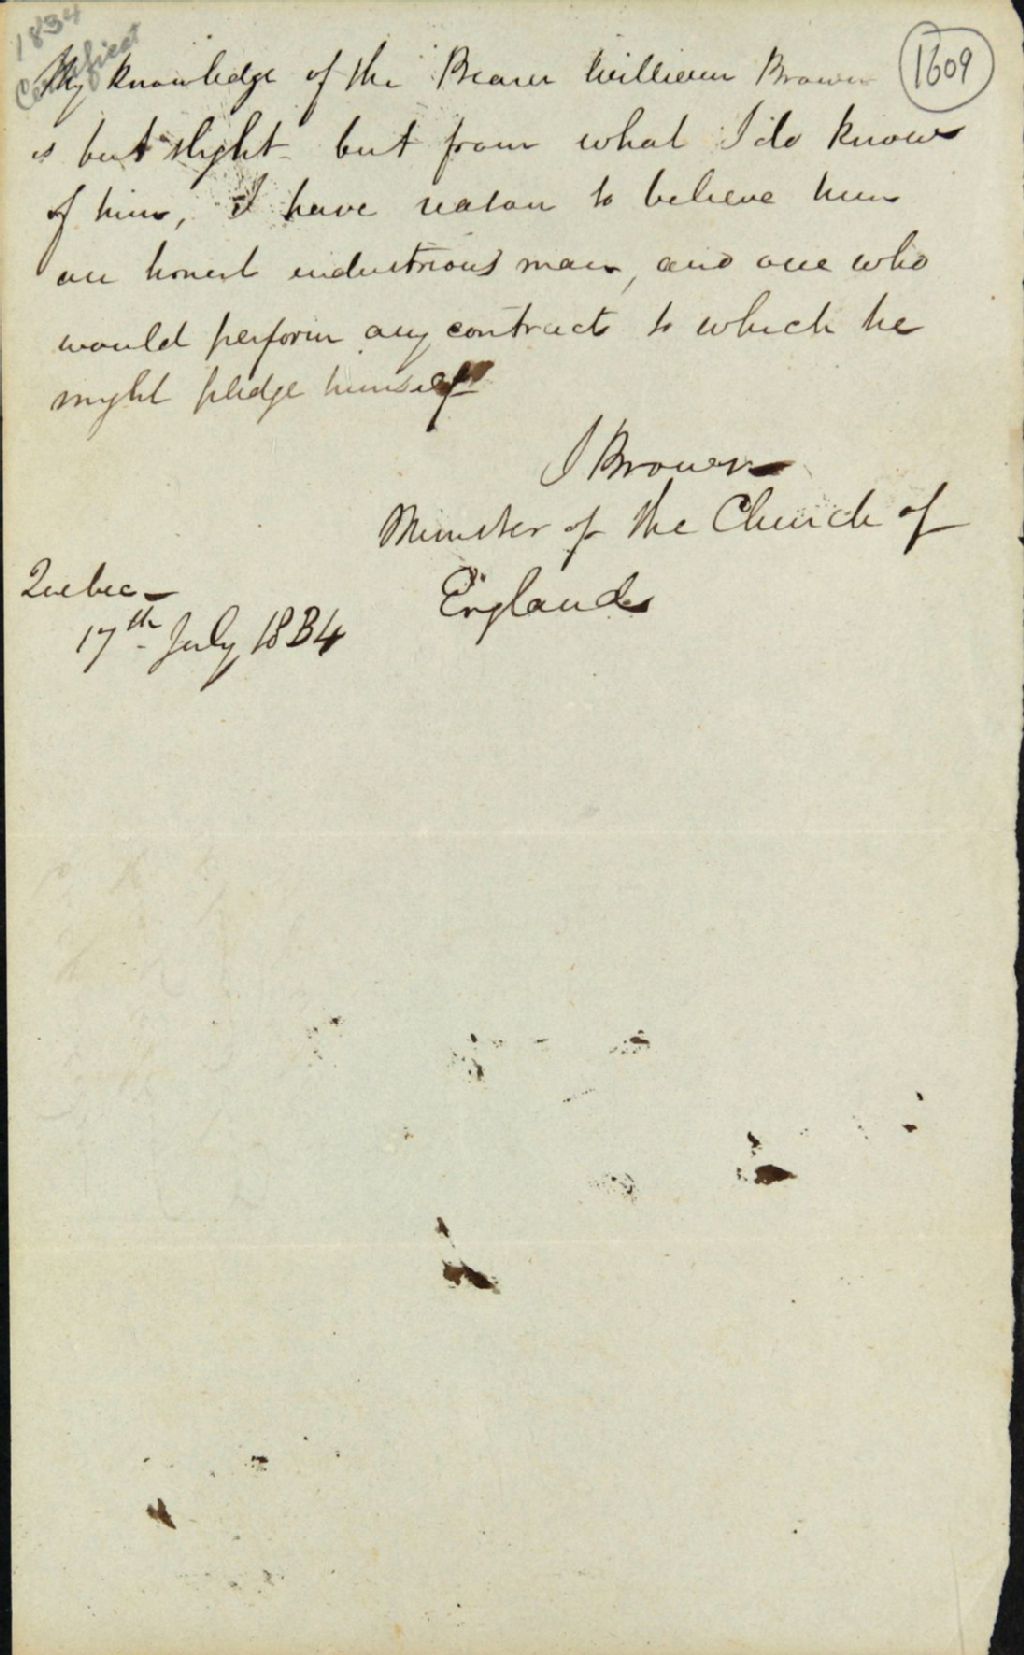 1834
Certificat
1609
My knowledge of the Bearer William Brown
is but slight but from what I do know
of him, I have reason to believe him
an honest industrious man, and one who
would perform any contract to which he
might pledge himself
J Brown
Minister of the Church of
England
Quebec
17th July 1834